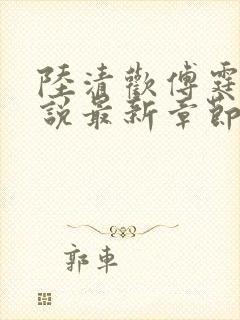 陸清歡傅霆
說最新章節
郭車